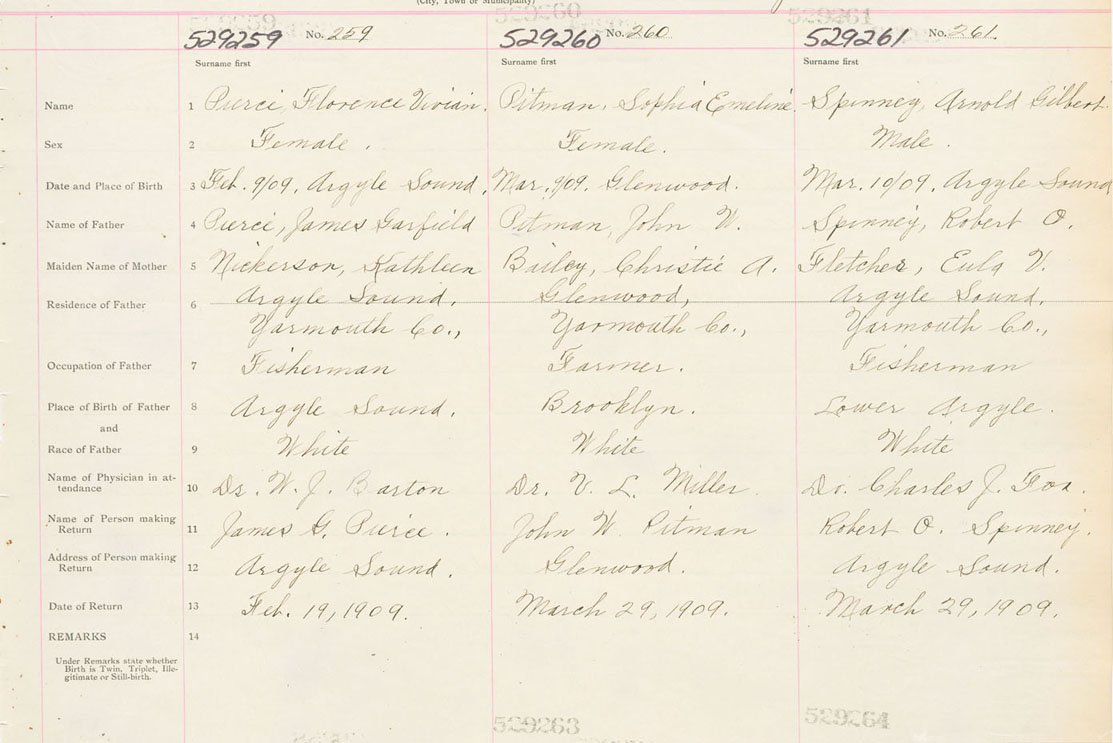 (City, Town or Municipality)
529259 529260 529261
529259 No. 259 529260 No. 260 529261 No. 261.
Surname first Surname first Surname first
Name 1 Pierci, Florence Vivian. Pitman, Sophia Emeline Spinney, Arnold Gilbert.
Sex 2 Female. Female. Male.
Date and Place of Birth 3 Feb. 9/09, Argyle Sound, Mar. 9/09. Glenwood. Mar. 10/09, Argyle Sound
Name of Father 4 Pierci, James Garfield Pitman, John W. Spinney, Robert O.
Maiden Name of Mother 5 Nickerson, Kathleen Bailey, Christie A. Fletcher, Eula V.
Residence of Father 6 Argyle Sound, Glenwood, Argyle Sound,
Yarmouth Co., Yarmouth Co., Yarmouth Co.,
Occupation of Father 7 Fisherman Farmer. Fisherman
Place of Birth of Father 8 Argyle Sound. Brooklyn. Lower Argyle.
and
Race of Father 9 White White White
Name of Physician in at-
tendance 10 Dr. W. J. Barton Dr. V. L. Miller Dr. Charles J. Fox.
Name of Person making
Return 11 James G. Pierce. John W. Pitman Robert O. Spinney.
Address of Person making
Return 12 Argyle Sound. Glenwood. Argyle Sound.
Date of Return 13 Feb. 19, 1909. March 29, 1909. March 29, 1909.
REMARKS 14
Under Remarks state whether
Birth is Twin, Triplet, Ille-
gitimate or Still-birth.
529263 529264